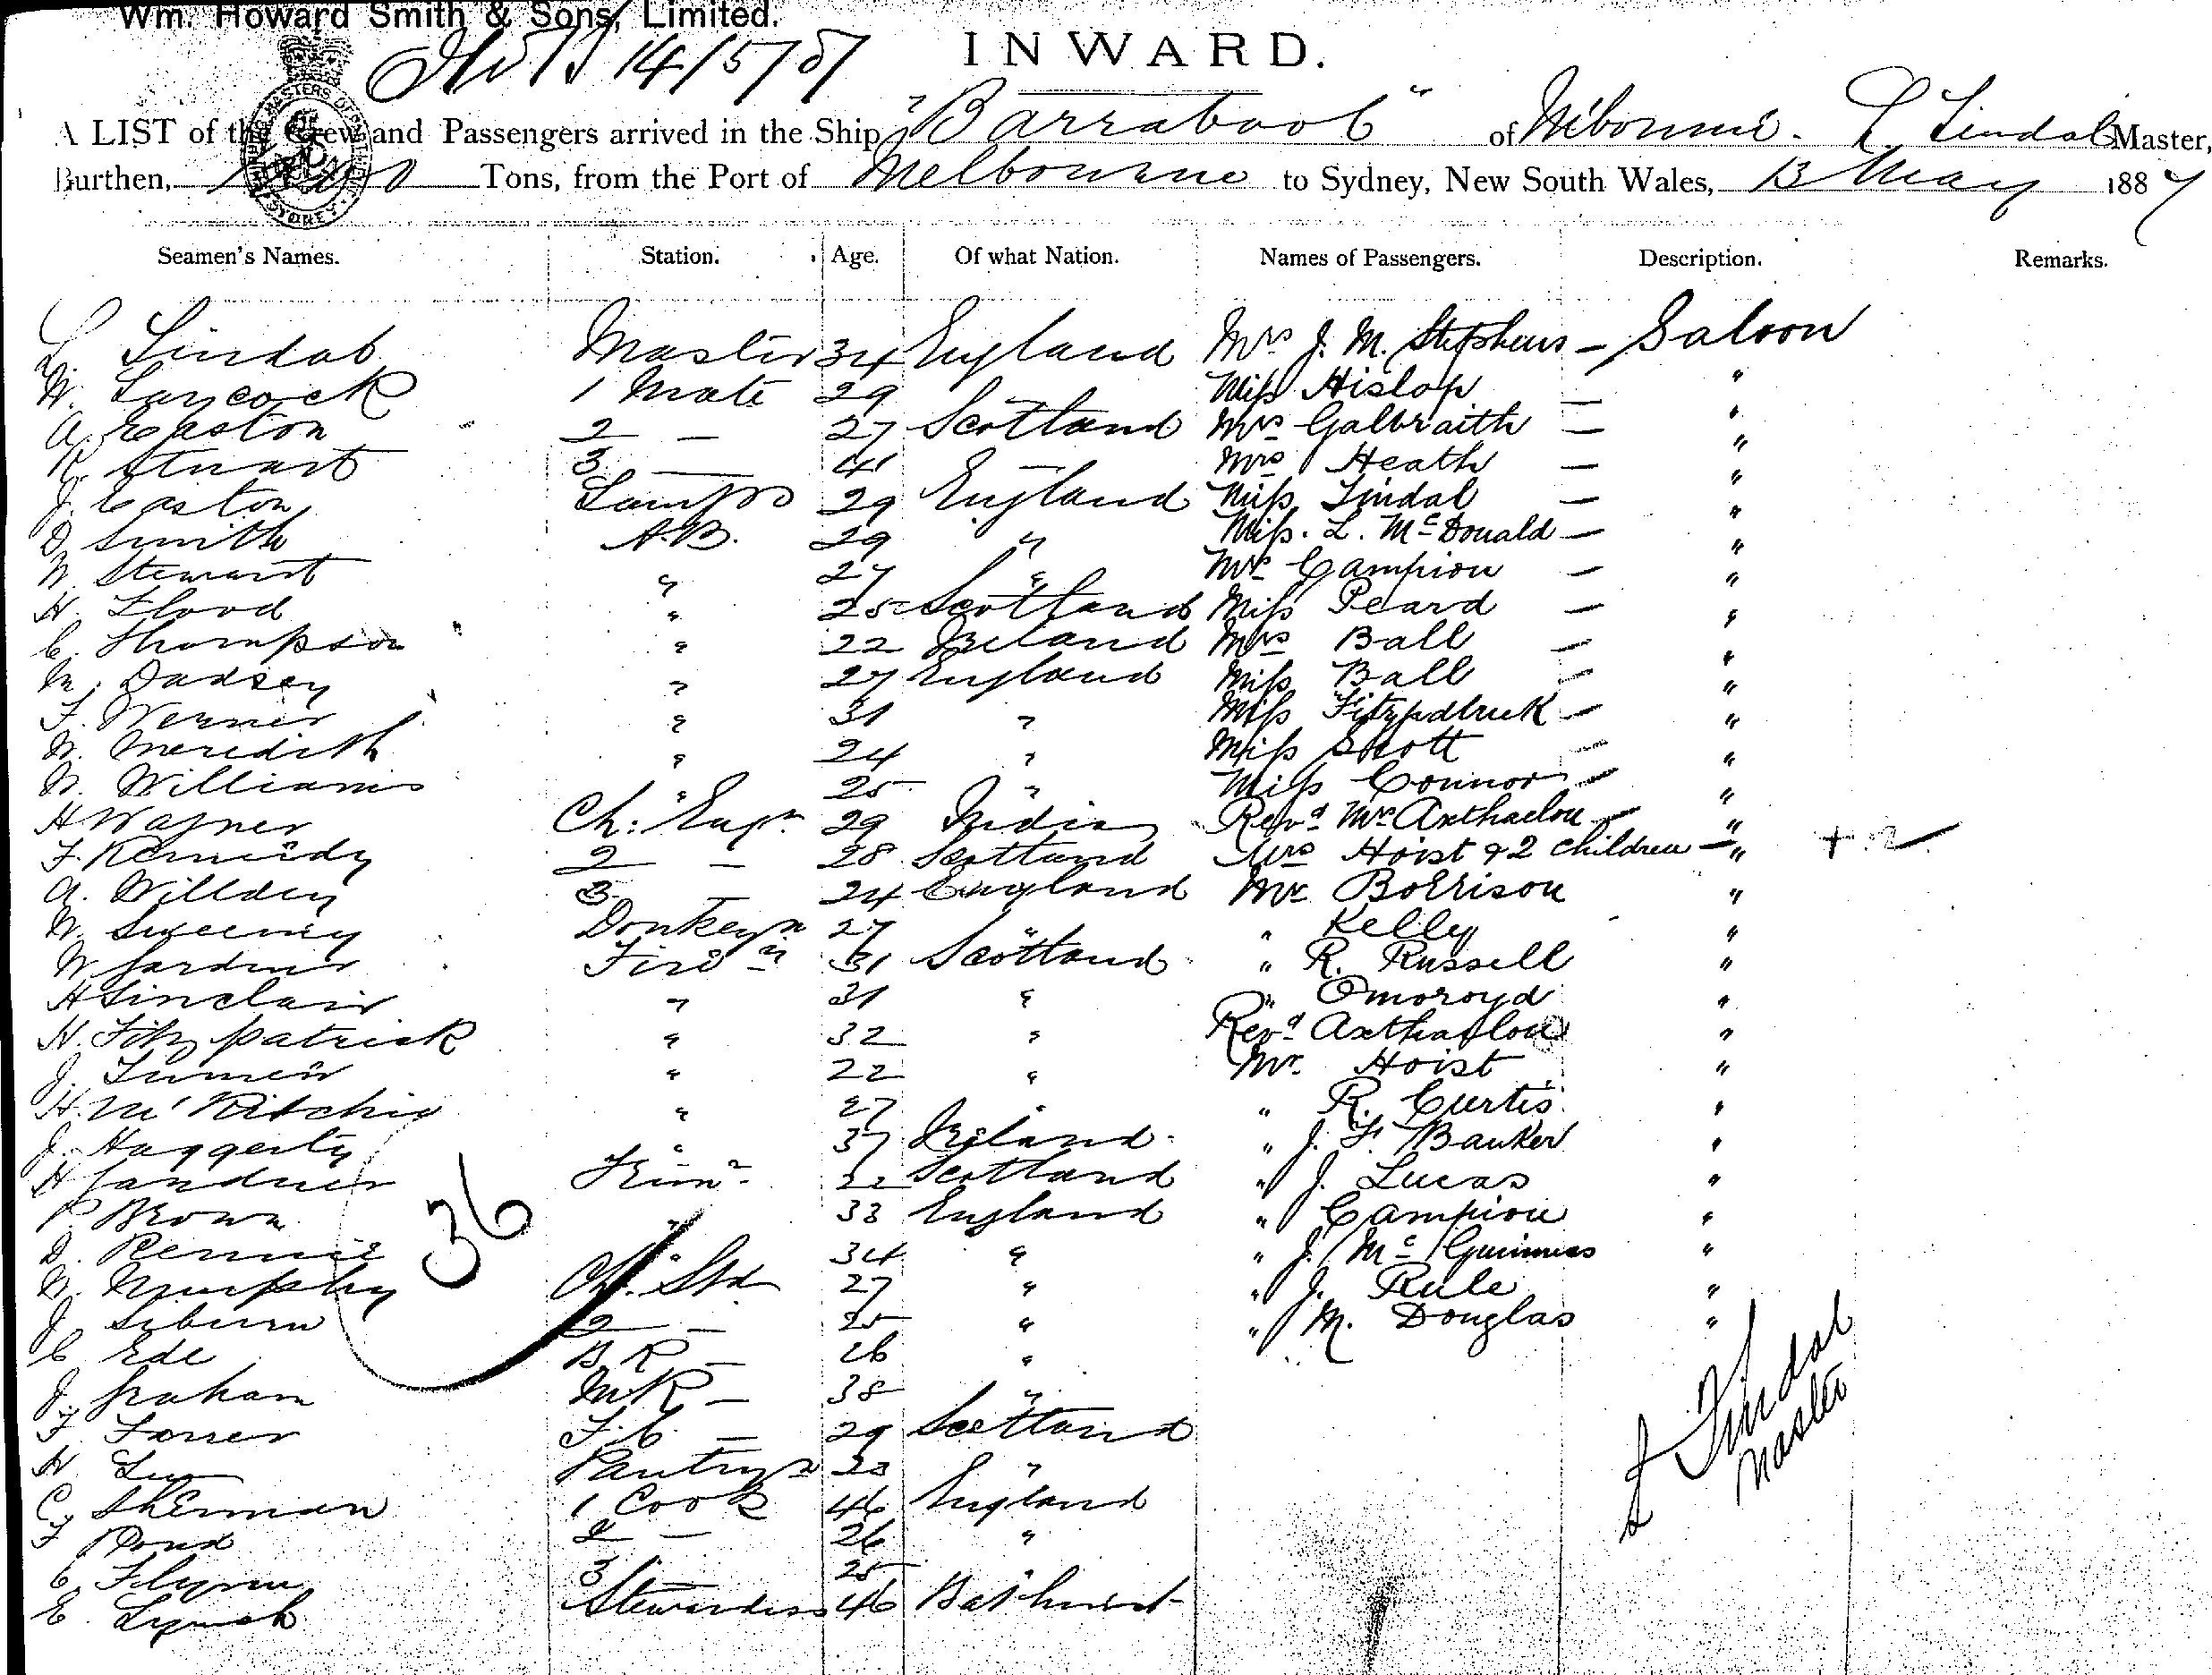 Wm. Howard Smith & Sons, Limited.
14/5/87
INWARD.
A LIST of the Crew and Passengers arrived in the Ship "Barrabool" of Melbourne. L Lindal Master,
Burthen, Tons, from the Port of Melbourne to Sydney, New South Wales, 13 May 1887
Seamen's Names. Station. Age. Of what Nation. Names of Passengers. Description. Remarks.
L. Lindal Master 34 England Mrs J. M. Stephens - Saloon
W. Laycock 1 Mate 29 Miss Hislop — "
A. Easton 2 — 27 Scotland Mrs Galbraith — "
R. Stuart 3 — 41 — Mrs Heath — "
J. Easton Lamps 29 England Miss Lindal — "
D. Smith A.B. 29 " Miss. L. McDonald — "
W. Stewart " 27 " Campion — "
H. Flood " 25 Scotland Miss Peard — "
C. Thompson " 22 Ireland Mrs Ball — "
M. Dadsey " 27 England Miss Ball — "
F. Werner " 31 " Miss — "
W. Meredith " 24 " Miss Scott — "
W. Williams " 25 " Miss Connor — "
H Wagner Ch: Engr. 29 India Revd — "
F. Kennedy 2 — 28 Scotland Mrs Hoist & 2 Children — " + 2
A. Willdey 3 — 24 England Mr "
W. Sweeney Donkeyn 27 " " Kelly "
W Gardner Firen 31 Scotland " R. Russell "
H Sinclair " 31 " " Omoroyd "
H. Fitzpatrick " 32 " Revd "
J. " 22 " Mr. Hoist "
H. McRitchie " 27 " " R. Curtis "
J. Haggerty " 37 Ireland " J. F. Banker "
H Gardner Trimr 22 Scotland " J. Lucas "
P. Brown " 33 England " Campion "
D. Rennie " 34 " " J. McGuinness "
W. Murphy Ch. Std 27 " " J. Rule "
J. 2 — 25 " " M. Douglas "
C Ede B R — 26 "
J. Graham M R — 38 "
F. F. C. — 29 Scotland
H. Pantryn 23 "
C. Sherman 1 Cook 46 England
F Pond 2 — 26 "
C. Flynn 3 — 25
E. Lynch Stewardess 46 Bathurst
36
L Lindal
Master